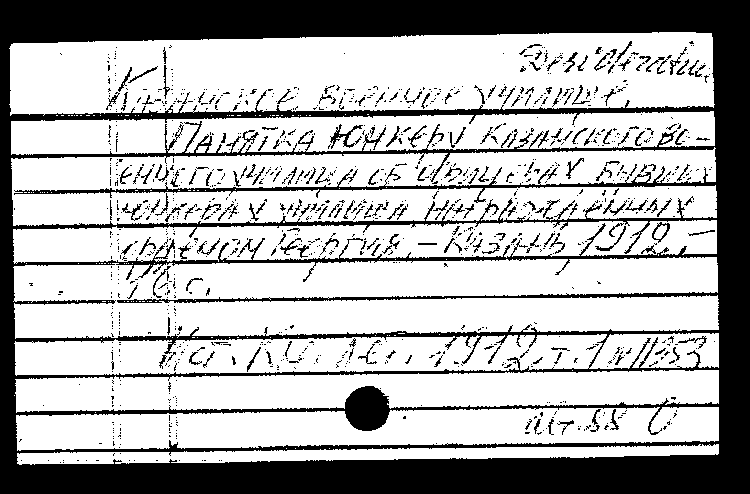 Desideratum
Казанское военное училище.
Памятка юнкеру Казанского во-
енного училища об офицерах бывших
юнкерах училища, награждённых
орденом Георгия. – Казань, 1912. –
16 с.
Ист. Кн. лет. 1912. т. 1 № 11353